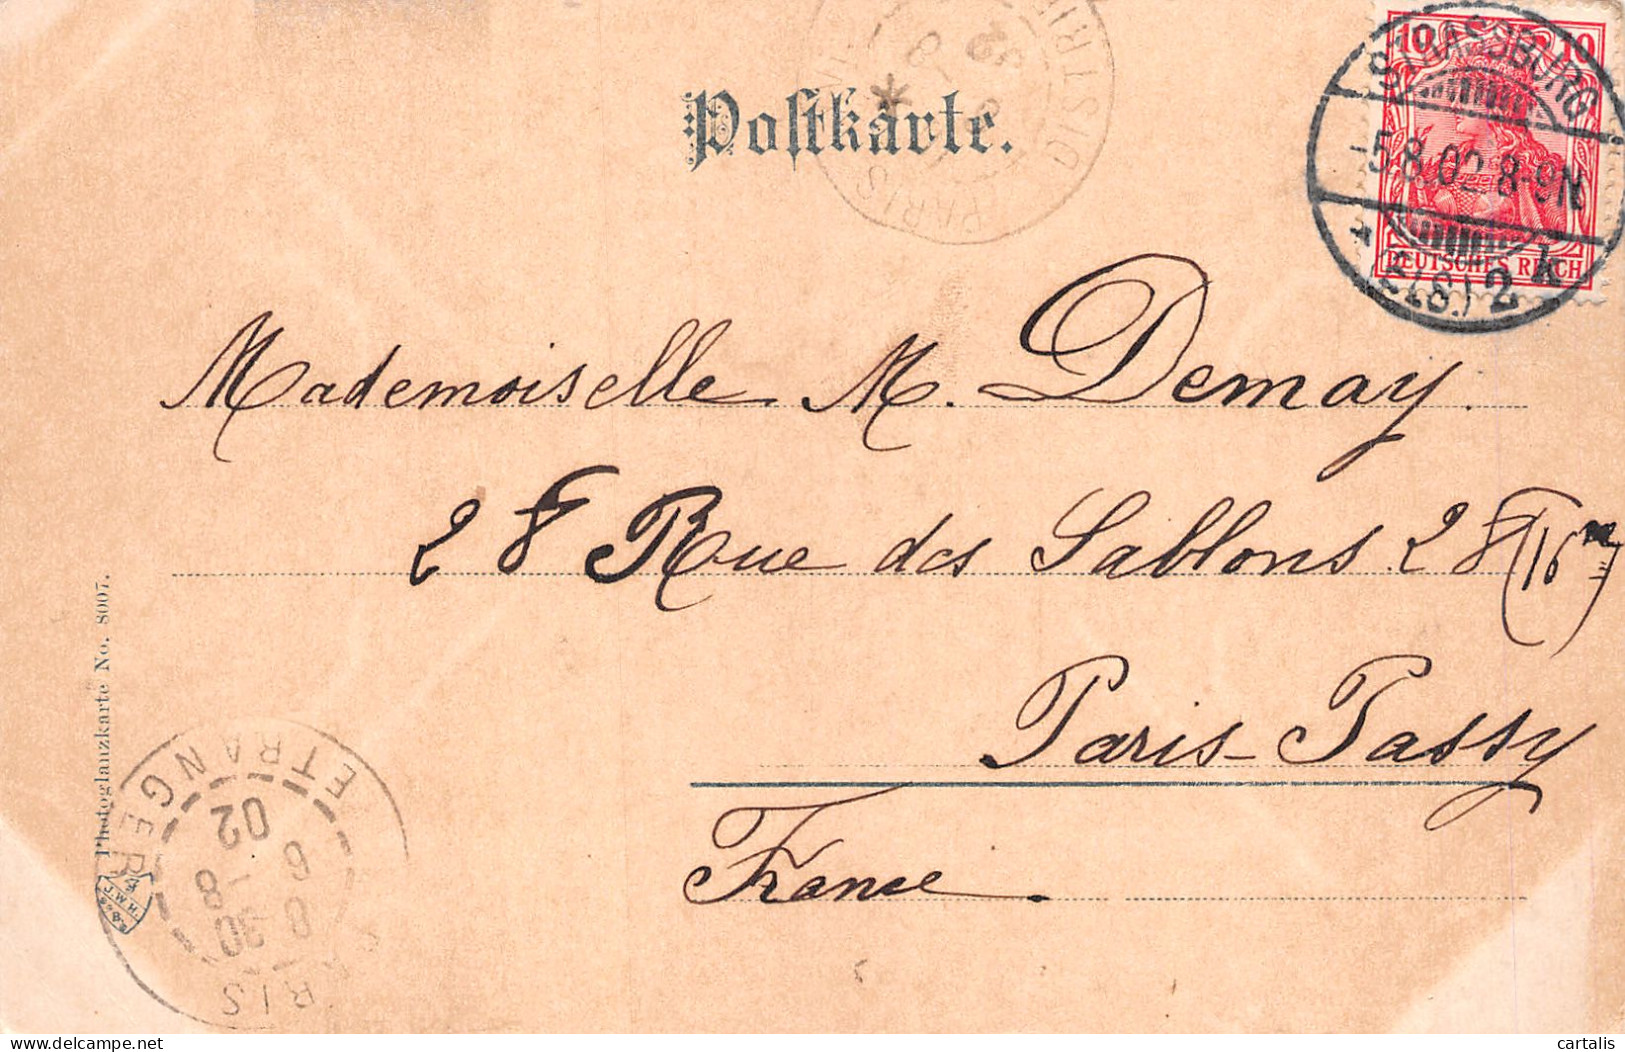 Postkarte.
10 10
DEUTSCHES REICH
STRASSBURG
5.8.02. 8-9N
* (ELS.) 2 k
PARIS DISTRIB
Mademoiselle M. Demay.
28 Rue des Sablons 28 (16
Paris-Passy
France.
Photoglanzkarte No. 8007.
J.W.H.
ETRANGER
8 30
6 - 8
02
delcampe.net
cartalis